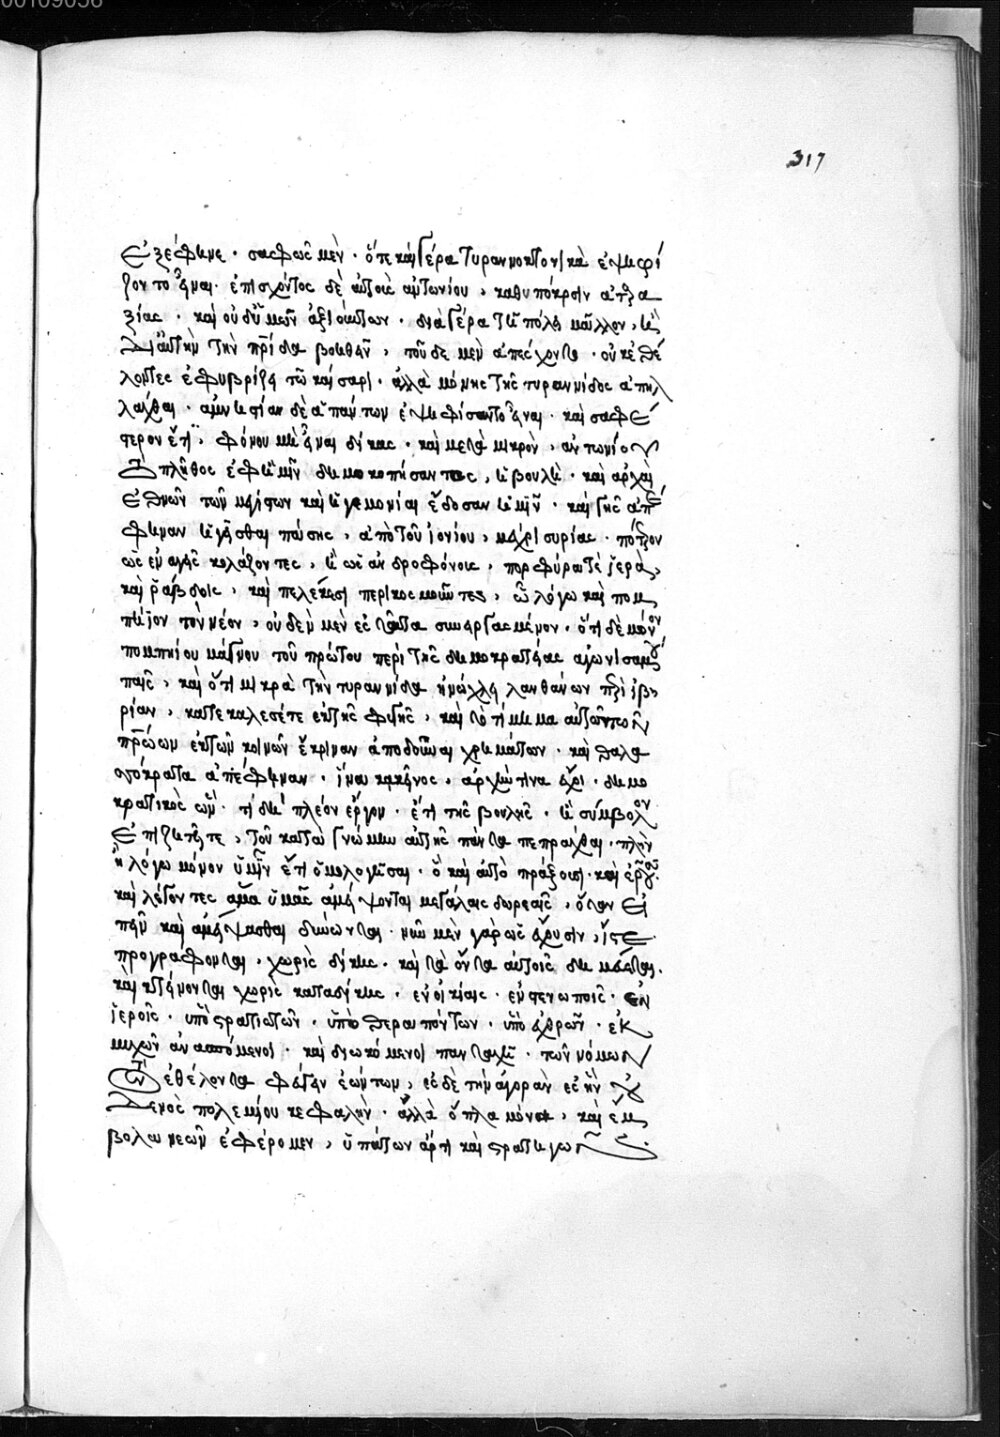 317
ἐξέφηνε · σαφῶς μὲν · ὅτε καὶ γέρα τυραννοκτονικὰ ἐψηφί
ζοντο εἶναι · ἐπισχόντος δὲ αὐτοὺς ἀντωνίου , καθ' ὑπόκρισιν ἀτα
ξίας · καὶ οὐδ' ἡμῶν ἀξιούντων · διὰ γέρα τῇ πόλει μᾶλλον , ἢ
δι' αὐτὴν τὴν πρίδα βοηθεῖν , τοῦδε μὲν ἀπέσχοντο · οὐκ ἐθέ
λοντες ἐφυβρίζειν τῶ καίσαρι · ἀλλὰ μόνης τῆς τυραννίδος ἀπηλ
λάχθαι · ἀμνηστίαν δὲ ἁπάντων ἐψηφίσαντο εἶναι · καὶ σαφέ
στερον ἔτι , φόνου μὴ εἶναι δίκας · καὶ μετὰ μικρὸν , ἀντωνίου
τὸ πλῆθος ἐφ' ἡμῖν δημοκοπήσαντος , ἡ βουλὴ · καὶ ἀρχὰς
ἐθνῶν τῶν μεγίστων καὶ ἡγεμονίαν ἔδοσαν ἡμῖν · καὶ γῆς ἀπέ
φηναν ἡγεῖσθαι πάσης , ἀπὸ τοῦ ἰονίου , μέχρι συρίας · πότερον
ὡς ἐναγεῖς κολάζοντες , ἢ ὡς ἀνδροφόνους , πορφύρα τὲ ἱερὰ ,
καὶ ῥάβδοις , καὶ πελέκεσι περικοσμοῦντες , ὧ λόγω καὶ πομ
πήϊον τὸν νέον , οὐδὲν μὲν ἐς ταῦτα συνειργασμένον · ὅτι δὲ μόνον
πομπηίου μάγνου τοῦ πρώτου περὶ τῆς δημοκρατείας ἀγωνισαμένου
παῖς , καὶ ὅτι μικρὰ τὴν τυραννίδα ἠνώχλει λανθάνων περὶ ἰβη
ρίαν , κατεκαλεσέτε ἐκ τῆς φυγῆς , καὶ τὸ τίμημα αὐτῶ τῶν
πρώων ἐκ τῶν κοινῶν ἔκριναν ἀποδοῦναι χρημάτων · καὶ θαλα
σσόκρατα ἀπέφηναν · ἵνα κἀκεῖνος , ἀρχήν τινα ἔχοι · δημο
κρατικὸς ὤν · τί δὴ πλέον ἔργον · ἔτι τῆς βουλῆς · ἢ σύμβολον
ἐπιζητεῖτε , τοῦ κατὰ γνώμην αὐτῆς πάντα πεπρᾶχθαι · πλὴν
ἢ λόγω μόνον ὑμῖν ἔτι ὁμολογῆσαι · ὃ καὶ αὐτὸ πράξουσι · καὶ ἐροῦσι ·
καὶ λέγοντες ἅμα ὑμᾶς ἀμείψονται μεγάλαις δωρεαῖς , ὅταν εἰ
πεῖν καὶ ἀμείψασθαι δύνωνται · νῦν μὲν γὰρ ὡς ἔχουσιν , ἴστε ·
προγράφονται , χωρὶς δίκης · καὶ τὰ ὄντα αὐτοῖς δημεύεται ·
καὶ κτείνονται χωρὶς καταδίκης · ἐν οἰκίαις · ἐν στενωποῖς · ἐν
ἱεροῖς · ὑπὸ στρατιωτῶν · ὑπὸ θεραπόντων · ὑπὸ ἐχθρῶν · ἐκ
μυχῶν ἀνασπόμενοι · καὶ διωκόμενοι πανταχῆ · τῶν νόμων
τὸν ἐθέλοντα φεύγειν ἐώντων , ἐς δὲ τὴν ἀγορὰν ἐς ἣν οὐ
δενὸς πολεμίου κεφαλὴν · ἀλλὰ ὅπλα μόνα , καὶ ἔμ
βολα νεῶν ἐφέρομεν , ὑπάτων ἄρτι καὶ στρατηγῶν ·